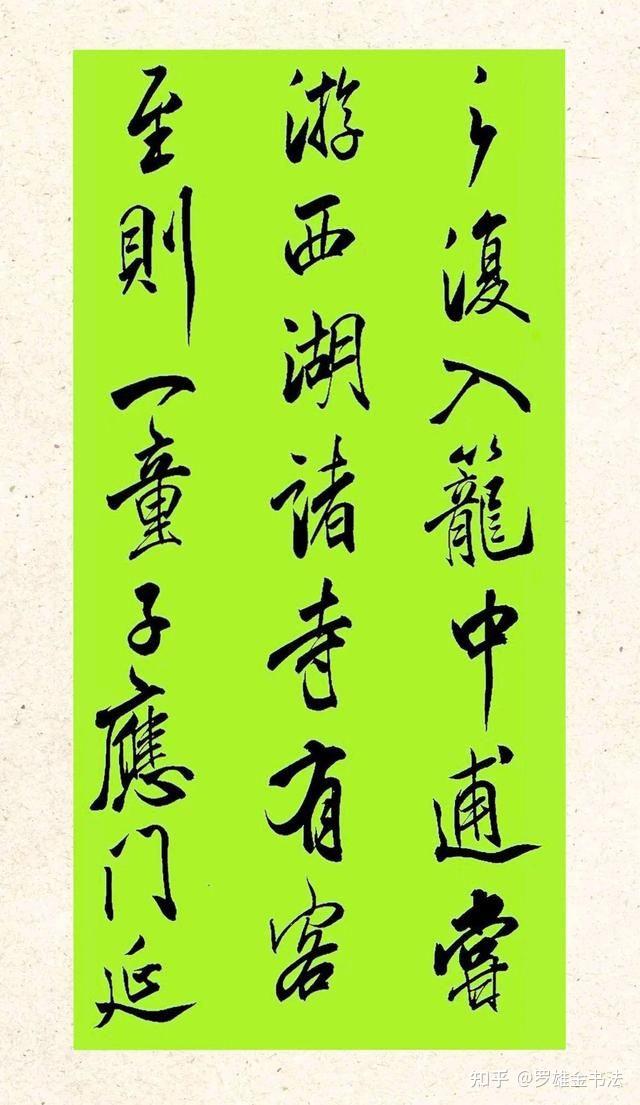 之復入籠中逋嘗
游西湖諸寺有客
至則一童子應门延
知乎 @罗雄金书法